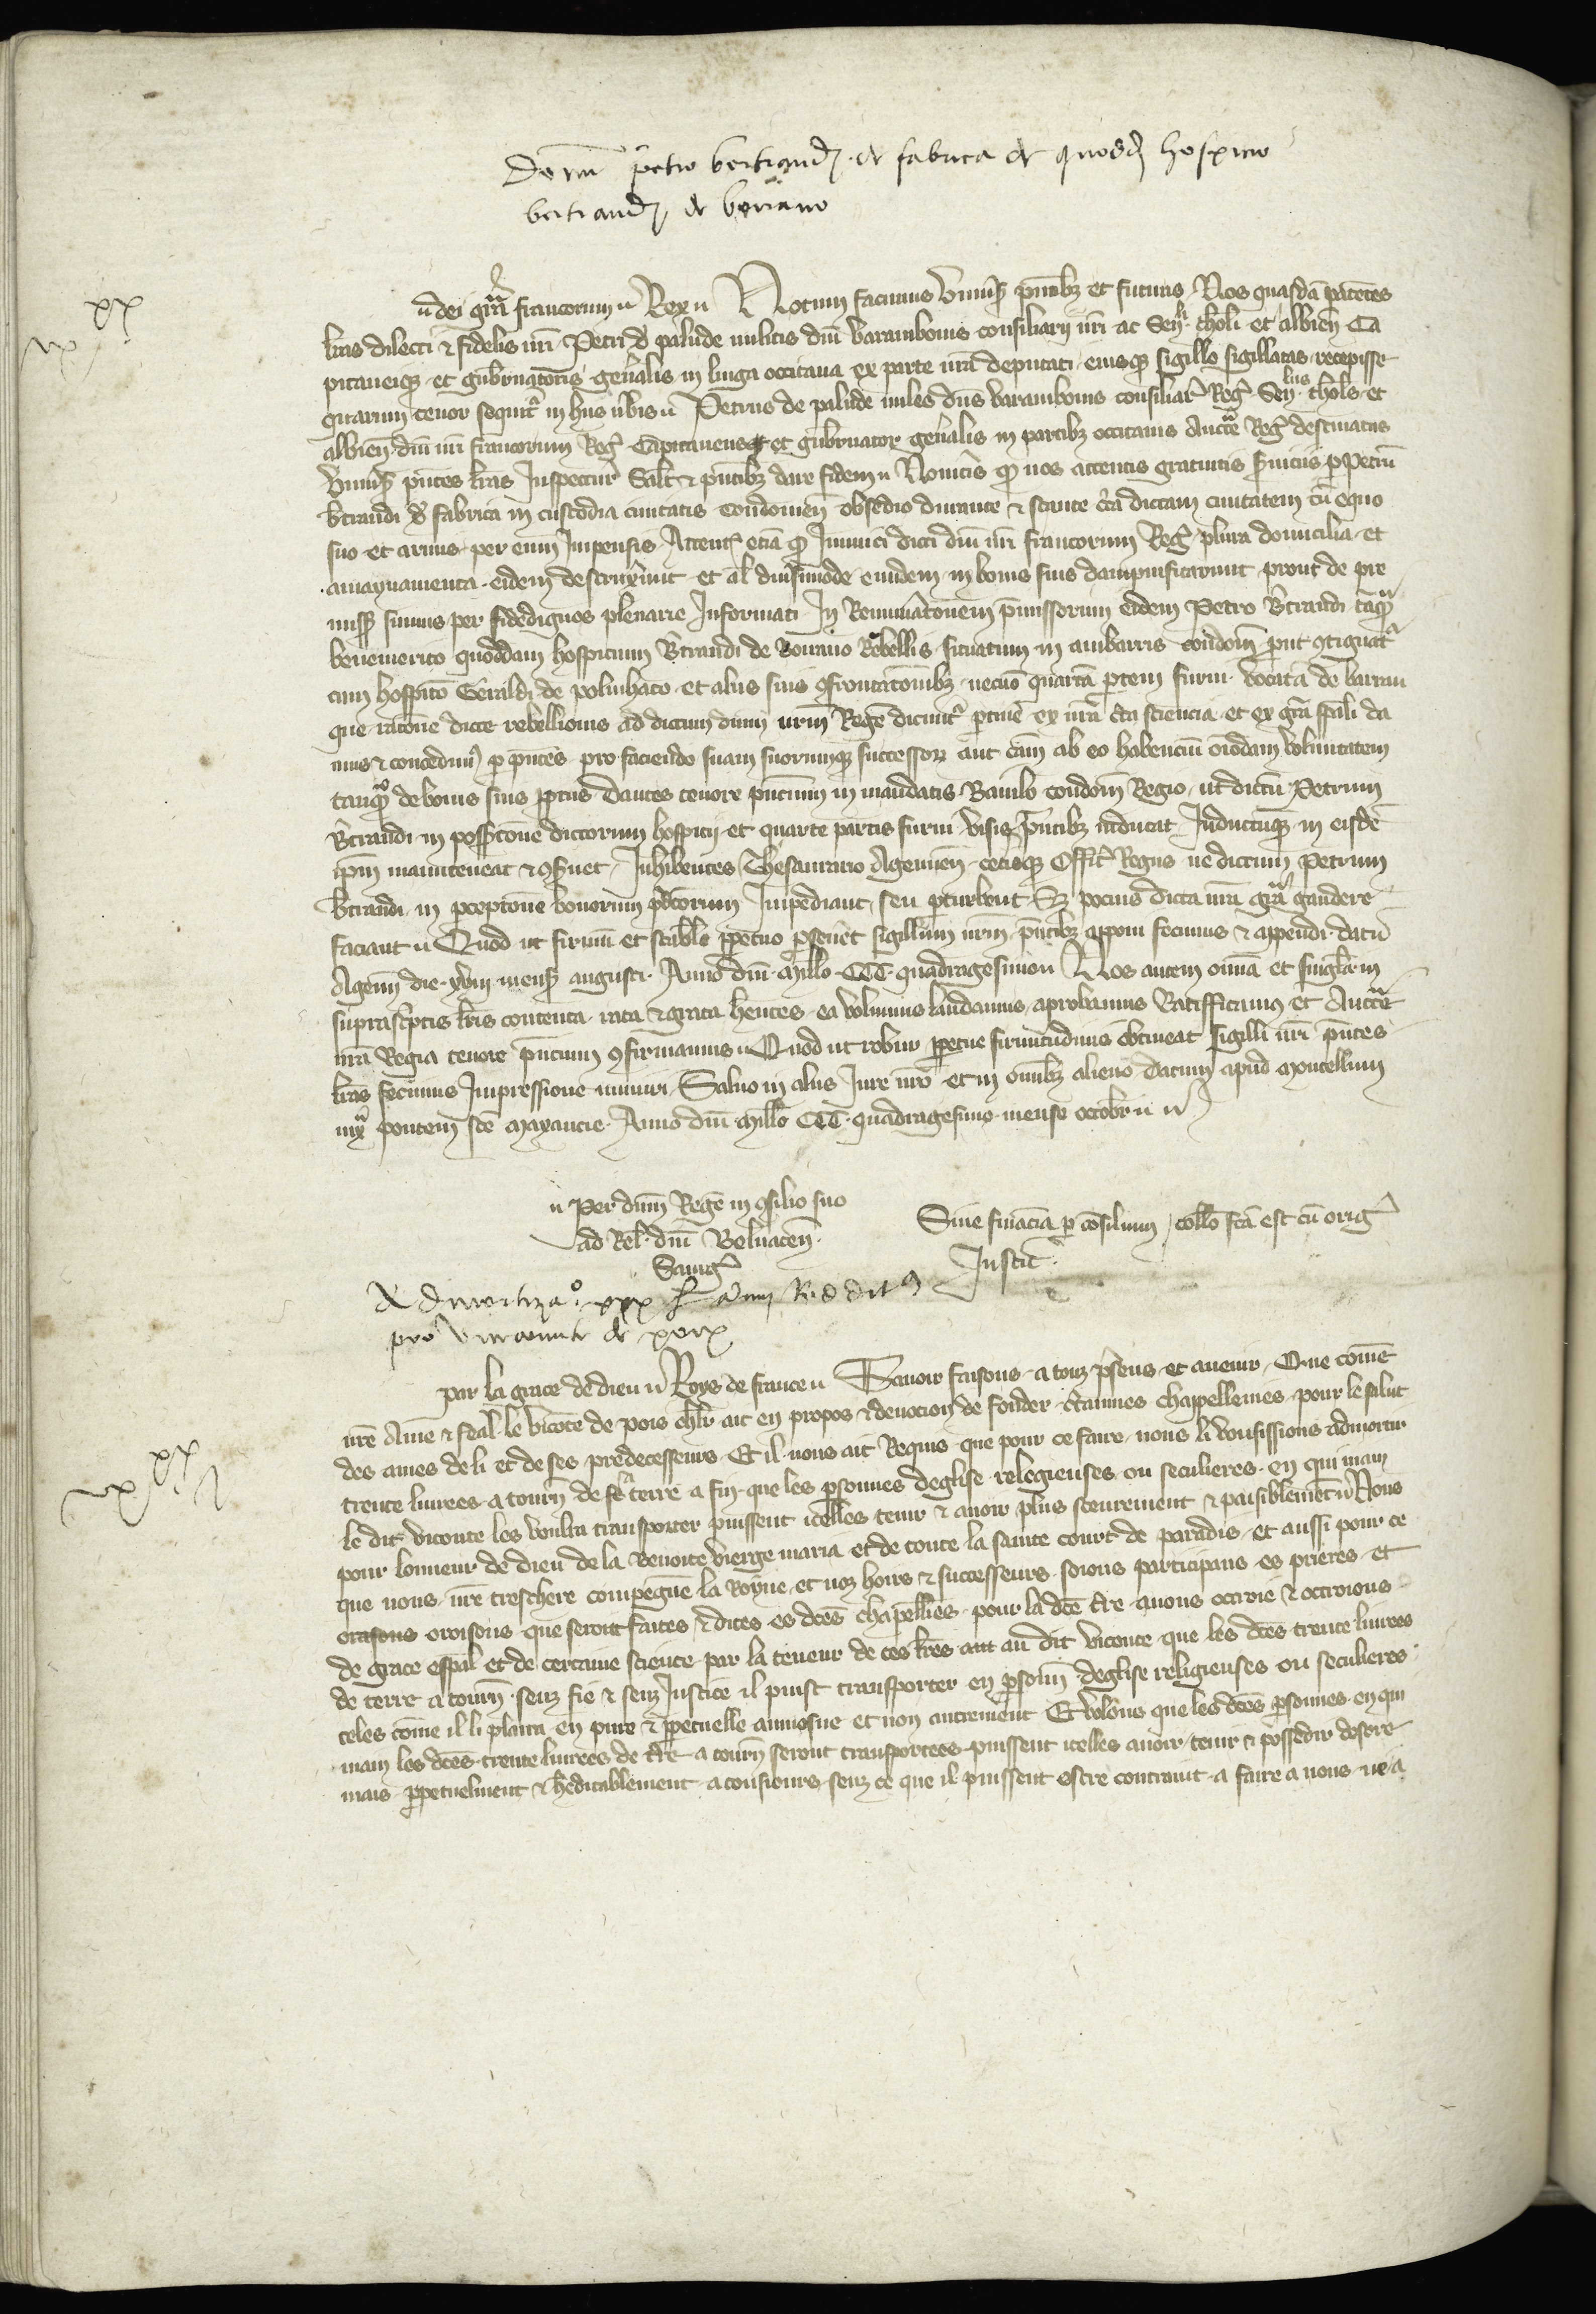 Donum petro bertrandi de fabrica de quodam hospicio
bertrandi de bonano
xx
dei gra francorum Rex Notum facimus Universis pntibz et futuris Nos quasdā patētes
lrās dilecti & fidelis nrī Petri de palude militis dnī varambonis consiliarii nrī ac Senlli tholi et albieñ Ca
pitaneiqz et gubnatoris genalis in linga occitana ex parte nrā deputati eiusqz sigillo sigillatas recepisse
quarum tenor sequitr in hec uba Petrus de palude miles dns varambonis consiliari9 Regi9 Senllus thols et
albieñ dnī nrī francorum Reg Capitaneusqz et gubnator genalis in partibz occitanis Auctte Reg destinatus
Univsis pntes lrās Inspectur Salt & pntibz dare fidem Noveritis qd nos attentis gratuitis Serviciis p Petrū
btrandi de fabrica in custodia civitatis Condomieñ obsedio durante & stante ctā dictam civitatem cū equo
suo et armis per eum Impensis Attent etiā qd Inimici dicti dnī nrī francorum Reg plura domicilia et
amaynamenta eidem destruxerint et al divsimode eundem in bonis suis dampnificarunt prout de pre
missis sumus per fidedignos plenarie Informati In Remunatōnem pmissorum eidem Petro Btrandi tāqz
benemerito quoddam hospicium Btrandi de Bonano Rebellis situatum in ambarris condom put 9tiguatr
cum hospitō Geraldi de polinhaco et aliis suis 9frontatōnibz necnō quartā ptem furni vocatā de barrau
que ratōne dicte rebellionis ad dictum dnum nrm Regē dicuntr ptinē ex nrā cta sciencia et ex grā spāli da
mus & concedim9 p pntes pro faciendo suam suorumqz successorz aut cām ab eo habenciū oīodam voluntatem
tanqz de bonis suis ppriis Dantes tenore pncium in mandatis Baiulo condom Regio ut dictū Petrum
Btrandi in possessiōne dictorum hospicii et quarte partis furni visis pntibz inducat Inductūqz in eisdē
ipm manuteneat & 9svet Inhibentes Thesaurario Ageneñ cetisqz Officr Regiis ne dictum Petrum
btrandi in pceptōne bonorum pdictorum Impediant seu pturbent Sz pocius dicta nrā grā gaudere
faciant Quod ut firmū et stabile ppetuo psevet sigillum nrm pntibz apponi fecimus & appendi datū
Agenni die xviii mensis augusti Anno dnī millo CCC quadragesimo Nos autem omia et singla in
suprascriptis lris contenta rata & grata hentes ea volumus laudamus aprobamus Ratifficamus et Auctte
nrā Regia tenore pncium 9firmamus Quod ut robur ppetue firmitudinis obtineat sigilli nrī pntes
lrās fecimus Impressione muniri Salvo in aliis Jure nrō et in omibz alieno datum apud moncellum
iuxta pontem sce maxancie Anno dnī millo CCC quadragesimo mense octobr
Per dnm Regē in 9silio suo
ad Rel dnī Belvaceñ
Sine financia p consilium collo fcā est cū orig
Justic
Admortizao xxx annui Redditus
pro vicecomite de poix
xx
par la grace de dieu Roys de france Savoir faisons a touz psens et avenir Que cōme
nre Amé & feal le viconte de pois chlr ait en propos & devocion de fonder ctaines chapellenies pour le salut
des ames de li et de ses predecesseurs Et il nous ait Requis que pour ce faire nous li vousissions admortir
trente livrees a tourn de sa terre a fin que les psonnes deglise relegieuses ou seculieres en qui main
le dit viconte les voulra transporter puissent icelles tenir & avoir plus seurement & paisiblement Nous
pour lonneur de dieu de la Benoite vierge maria et de toute la sainte court de paradis et aussi pour ce
que nous nre treschere compegne la Royne et noz hoirs & successeurs soions participans es prieres et
orasons oroisons que seront faites & dites es dces chapelles pour la dce tre avons octroie & octroions
de grace espal et de certaine science par la teneur de ces lres aut au dit viconte que les dces trente livrees
de terre a tourn senz fie & senz Justice il puist transporter en psonn deglise religieuses ou seculieres
teles cōme il li plaira en pure & ppetuelle aumosne et non autrement Et volōns que les dces psonnes en qui
main les dces trente livrees de tre a tourn seront transportees puissent icelles avoir tenir & possedir desore
mais ppetuelment & heditablement a tousiours senz ce que il puissent estre contraint a faire a nous ne a